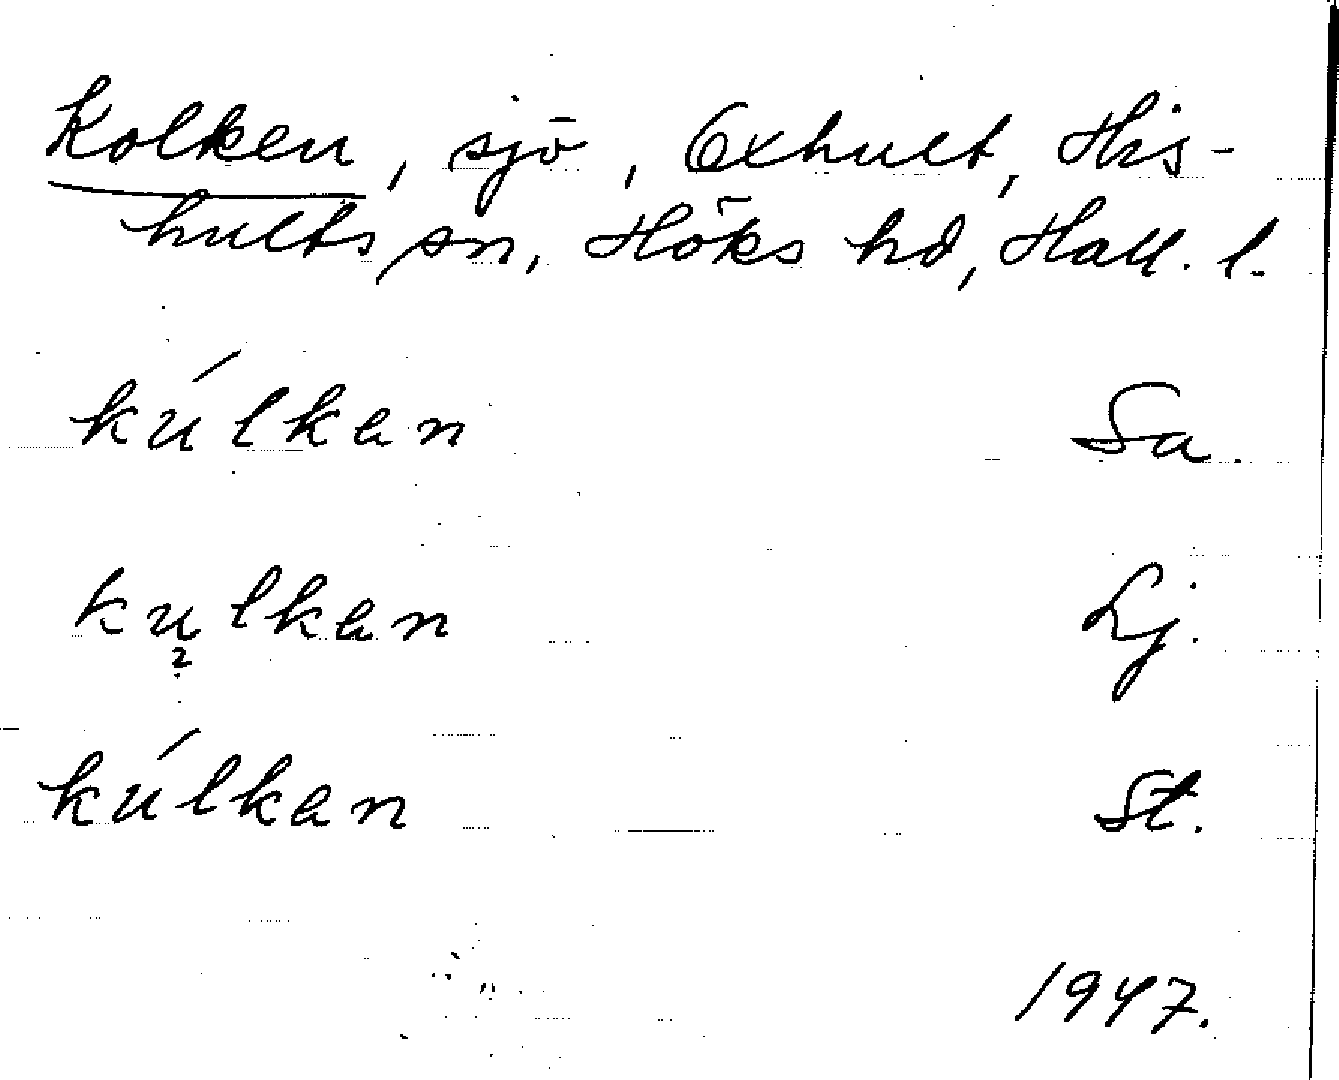 Kolken, sjö, Oxhult, His-
hults sn, Höks hd, Hall. l.
kúlkan Sa.
kulkan Lj.
2
kúlkan St.
1947.